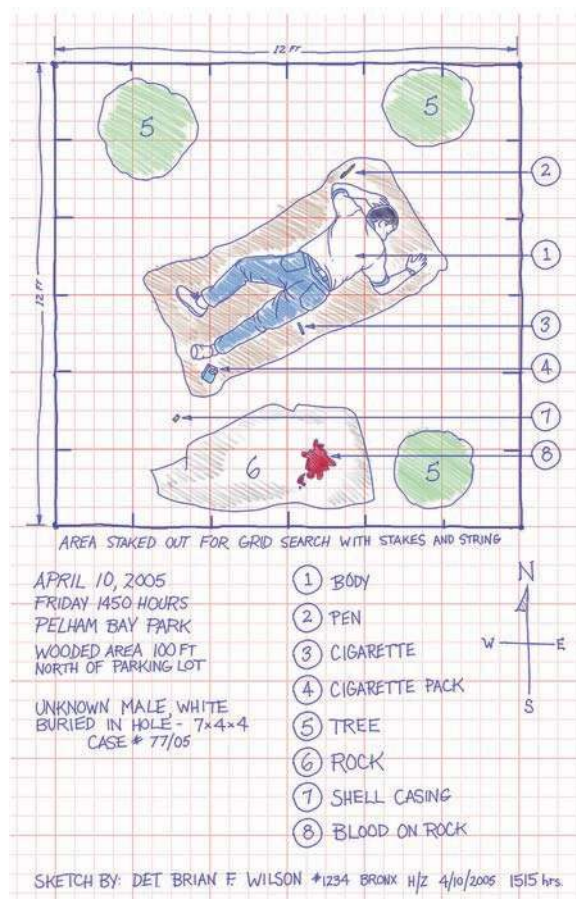 12 FT
5
5
2
12 FT
1
3
4
7
6
5
8
AREA STAKED OUT FOR GRID SEARCH WITH STAKES AND STRING
APRIL 10, 2005
FRIDAY 1450 HOURS
PELHAM BAY PARK
WOODED AREA 100 FT
NORTH OF PARKING LOT
UNKNOWN MALE, WHITE
BURIED IN HOLE - 7x4x4
CASE # 77/05
1 BODY
2 PEN
3 CIGARETTE
4 CIGARETTE PACK
5 TREE
6 ROCK
7 SHELL CASING
8 BLOOD ON ROCK
N
W E
S
SKETCH BY: DET BRIAN F. WILSON #1234 BRONX H/Z 4/10/2005 1515 hrs.